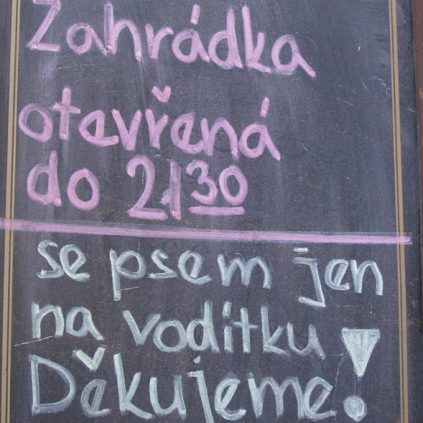 Zahrádka
otevřená
do 21³⁰
se psem jen
na vodítku!
Děkujeme.